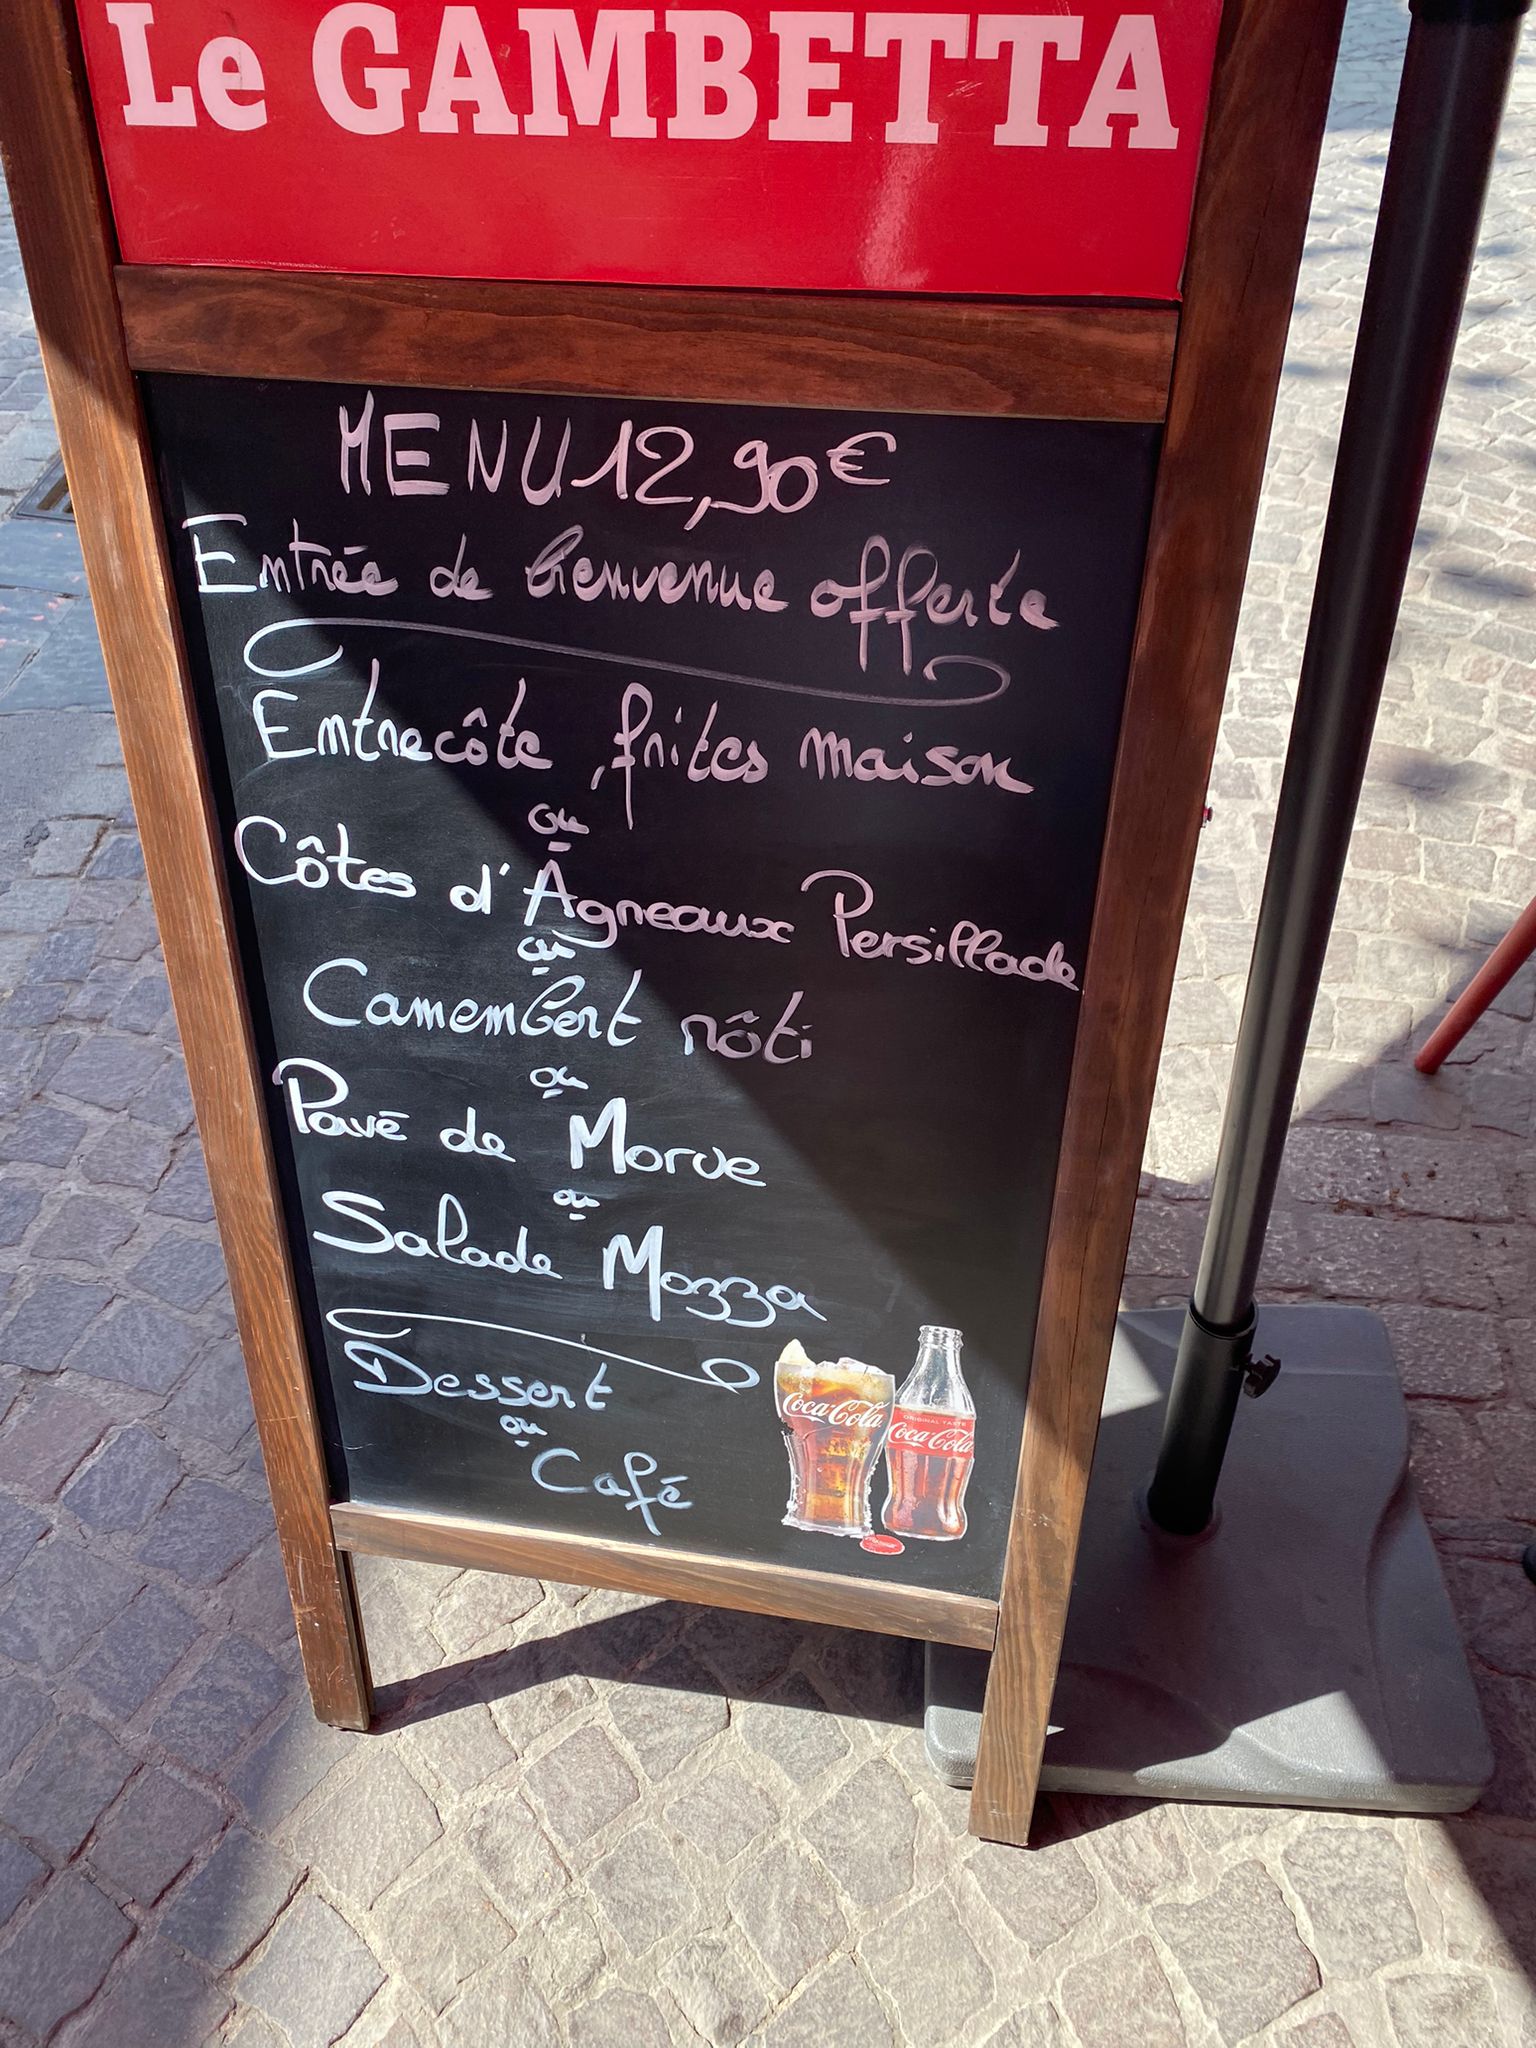 Le GAMBETTA
MENU 12,90€
Entrée de bienvenue offerte
Entrecôte, frites maison
ou
Côtes d'Agneaux Persillade
ou
Camembert rôti
ou
Pavé de Morue
ou
Salade Mozza
Dessert
ou
Café
Coca-Cola
ORIGINAL TASTE
Coca-Cola